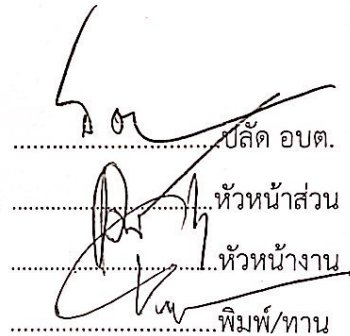 ....................ปลัด อบต.
....................หัวหน้าส่วน
....................หัวหน้างาน
....................พิมพ์/ทาน